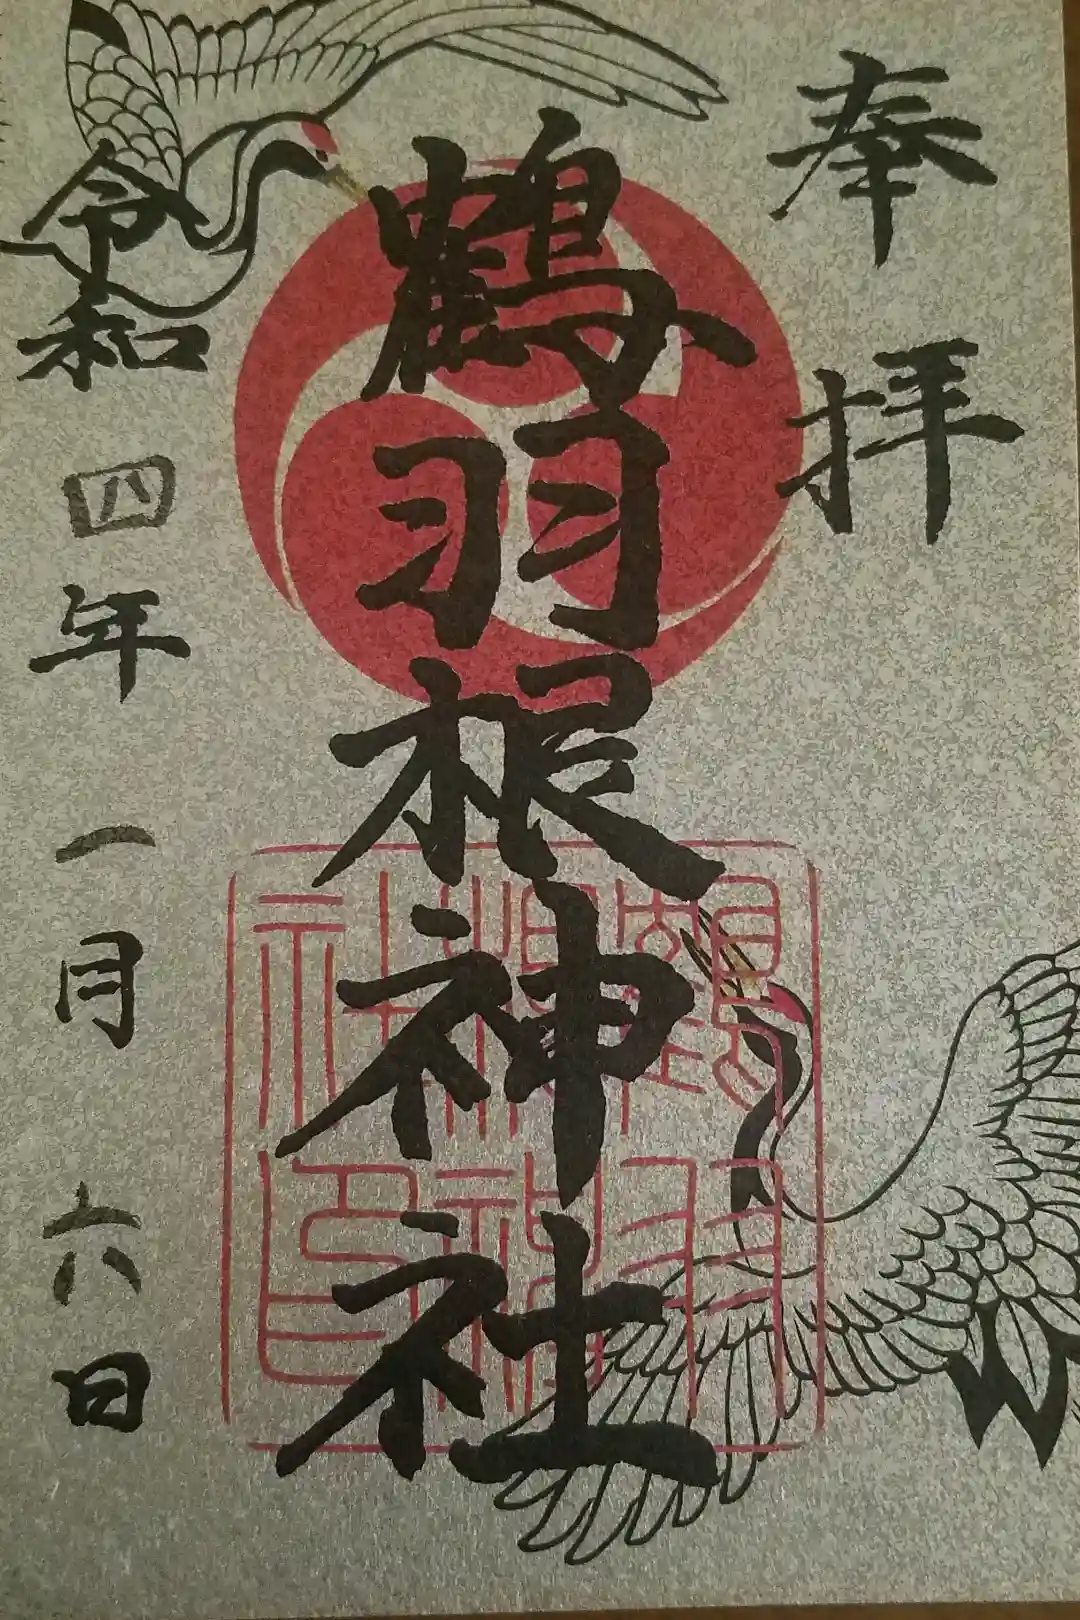 奉拝
鶴羽根神社
鶴羽根神社印
令和四年一月六日